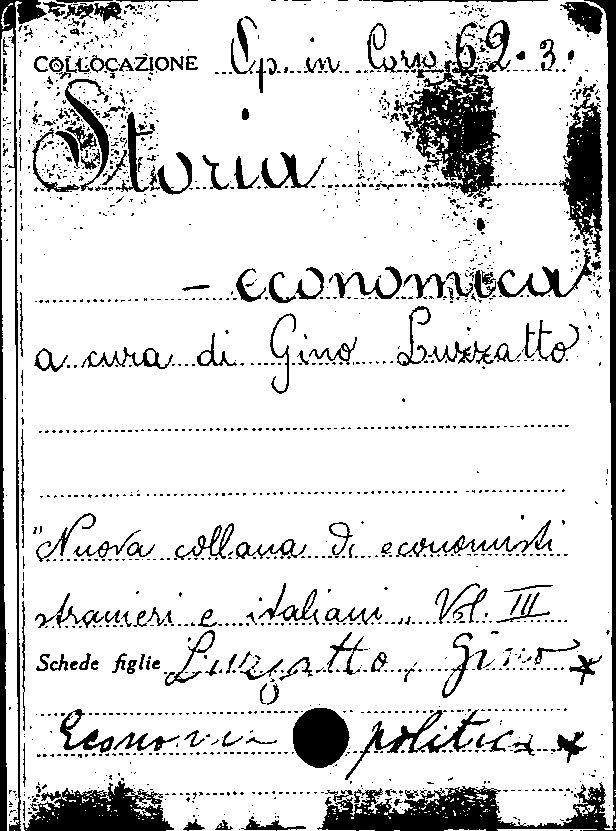 COLLOCAZIONE Op. in Corso 62.3.
Storia
- economica
a cura di Gino Luzzatto
"Nuova collana di economisti
stranieri e italiani„ Vol. III
Schede figlie Luzzatto, Gino *
Economia politica *